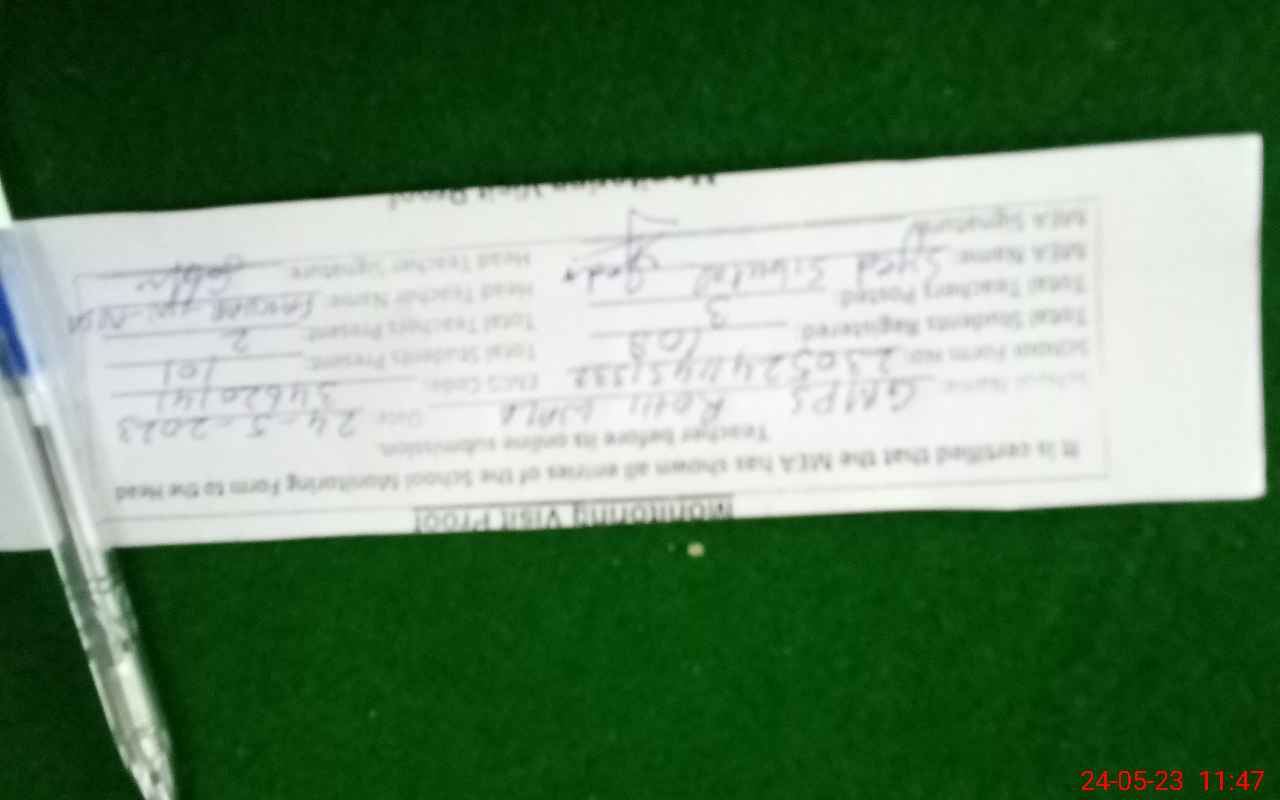 Monitoring Visit Proof
It is certified that the MEA has shown all entries of the School Monitoring Form to the Head
Teacher before its online submission.
School Name: GMPS Rotti Wala Date: 24-5-2023
School Form No: EMIS Code: 34620141
Total Students Registered: 109 Total Students Present: 101
Total Teachers Posted: 3 Total Teachers Present: 2
MEA Name: Syed Head Teacher Name:
MEA Signature: Head Teacher Signature:
Monitoring Visit Proof
24-05-23 11:47